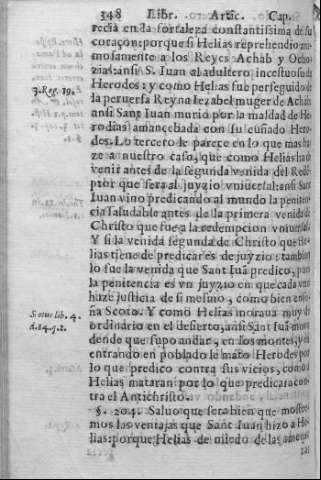 348 Libr. Artic. Cap.
recia en la fortaleza constantissima de su
coraçon: porque si Helias reprehendio ani-
mosamente a los Reyes Achab y Ocho-
zias: ansi S. Iuan al adultero incestuoso de
Herodes: y como Helias fue perseguido de
3. Reg. 19.
la peruersa Reyna Iezabel muger de Achab
ansi Sant Iuan murio por la maldad de He-
rodias amancebada con su cuñado Hero-
des. Lo tercero le parece en lo que mas ha-
ze a nuestro caso, que como Helias ha de
venir antes de la segunda venida del Rede-
ptor que sera al juyzio vniuersal: ansi Sant
Iuan vino predicando al mundo la peniten-
cia saludable antes de la primera venida de
Christo que fue a la redempcion vniuersal.
Y si la venida segunda de Christo que He-
lias tiene de predicar es de juyzio: tambien
lo fue la venida que Sant Iuã predico, pues
la penitencia es vn juyzio en que cada vno
haze justicia de si mesmo, como bien ense-
ña Scoto. Y como Helias moraua muy de
Scotus lib. 4.
ordinario en el desierto, ansi Sant Iuã mora
d.14.q.2.
dende que supo andar, en los montes, y en
entrando en poblado le mato Herodes por
lo que predico contra sus vicios, como a
Helias mataran por lo que predicara con-
tra el Antichristo.
§. 204. Saluo que sera bien que mostre-
mos las ventajas que Sant Iuan hizo a He-
lias: porque Helias de miedo de las amena